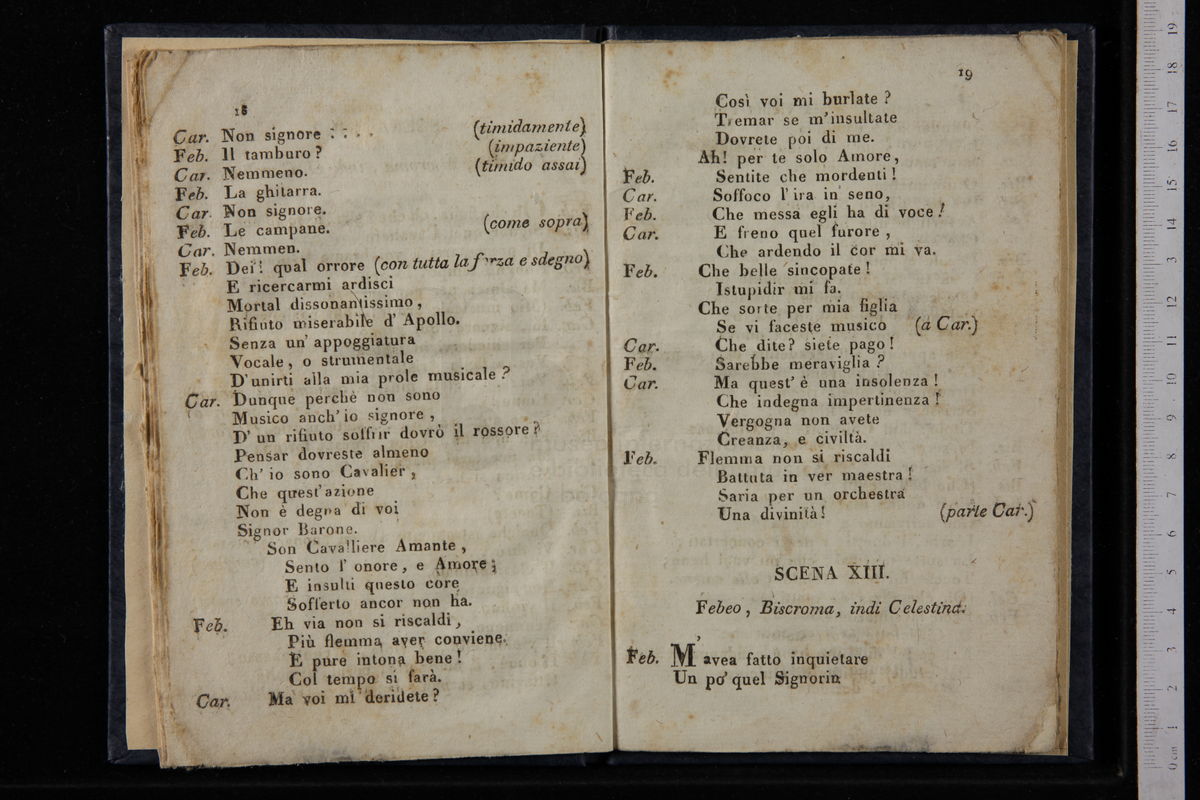 18
Car. Non signore : : . . (timidamente)
Feb. Il tamburo? (impaziente)
Car. Nemmeno. (timido assai)
Feb. La ghitarra.
Car. Non signore.
Feb. Le campane. (come sopra)
Car. Nemmen.
Feb. Dei! qual orrore (con tutta la forza e sdegno)
E ricercarmi ardisci
Mortal dissonantissimo,
Rifiuto miserabile d' Apollo.
Senza un' appoggiatura
Vocale, o strumentale
D' unirti alla mia prole musicale?
Car. Dunque perchè non sono
Musico anch' io signore,
D' un rifiuto soffrir dovrò il rossore?
Pensar dovreste almeno
Ch' io sono Cavalier,
Che quest' azione
Non è degna di voi
Signor Barone.
Son Cavalliere Amante,
Sento l' onore, e Amore;
E insulti questo core
Sofferto ancor non ha.
Feb. Eh via non si riscaldi,
Più flemma aver conviene.
E pure intona bene!
Col tempo si farà.
Car. Ma voi mi deridete?
19
Così voi mi burlate?
Tremar se m'insultate
Dovrete poi di me.
Ah! per te solo Amore,
Feb. Sentite che mordenti!
Car. Soffoco l' ira in seno,
Feb. Che messa egli ha di voce!
Car. E freno quel furore,
Che ardendo il cor mi va.
Feb. Che belle sincopate!
Istupidir mi fa.
Che sorte per mia figlia
Se vi faceste musico (a Car.)
Car. Che dite? siete pago!
Feb. Sarebbe meraviglia?
Car. Ma quest' è una insolenza!
Che indegna impertinenza!
Vergogna non avete
Creanza, e civiltà.
Feb. Flemma non si riscaldi
Battuta in ver maestra!
Saria per un orchestra
Una divinità! (parte Car.)
SCENA XIII.
Febeo, Biscroma, indi Celestina.
Feb. M' avea fatto inquietare
Un po' quel Signorin
0 cm 1 2 3 4 5 6 7 8 9 10 11 12 13 14 15 16 17 18 19